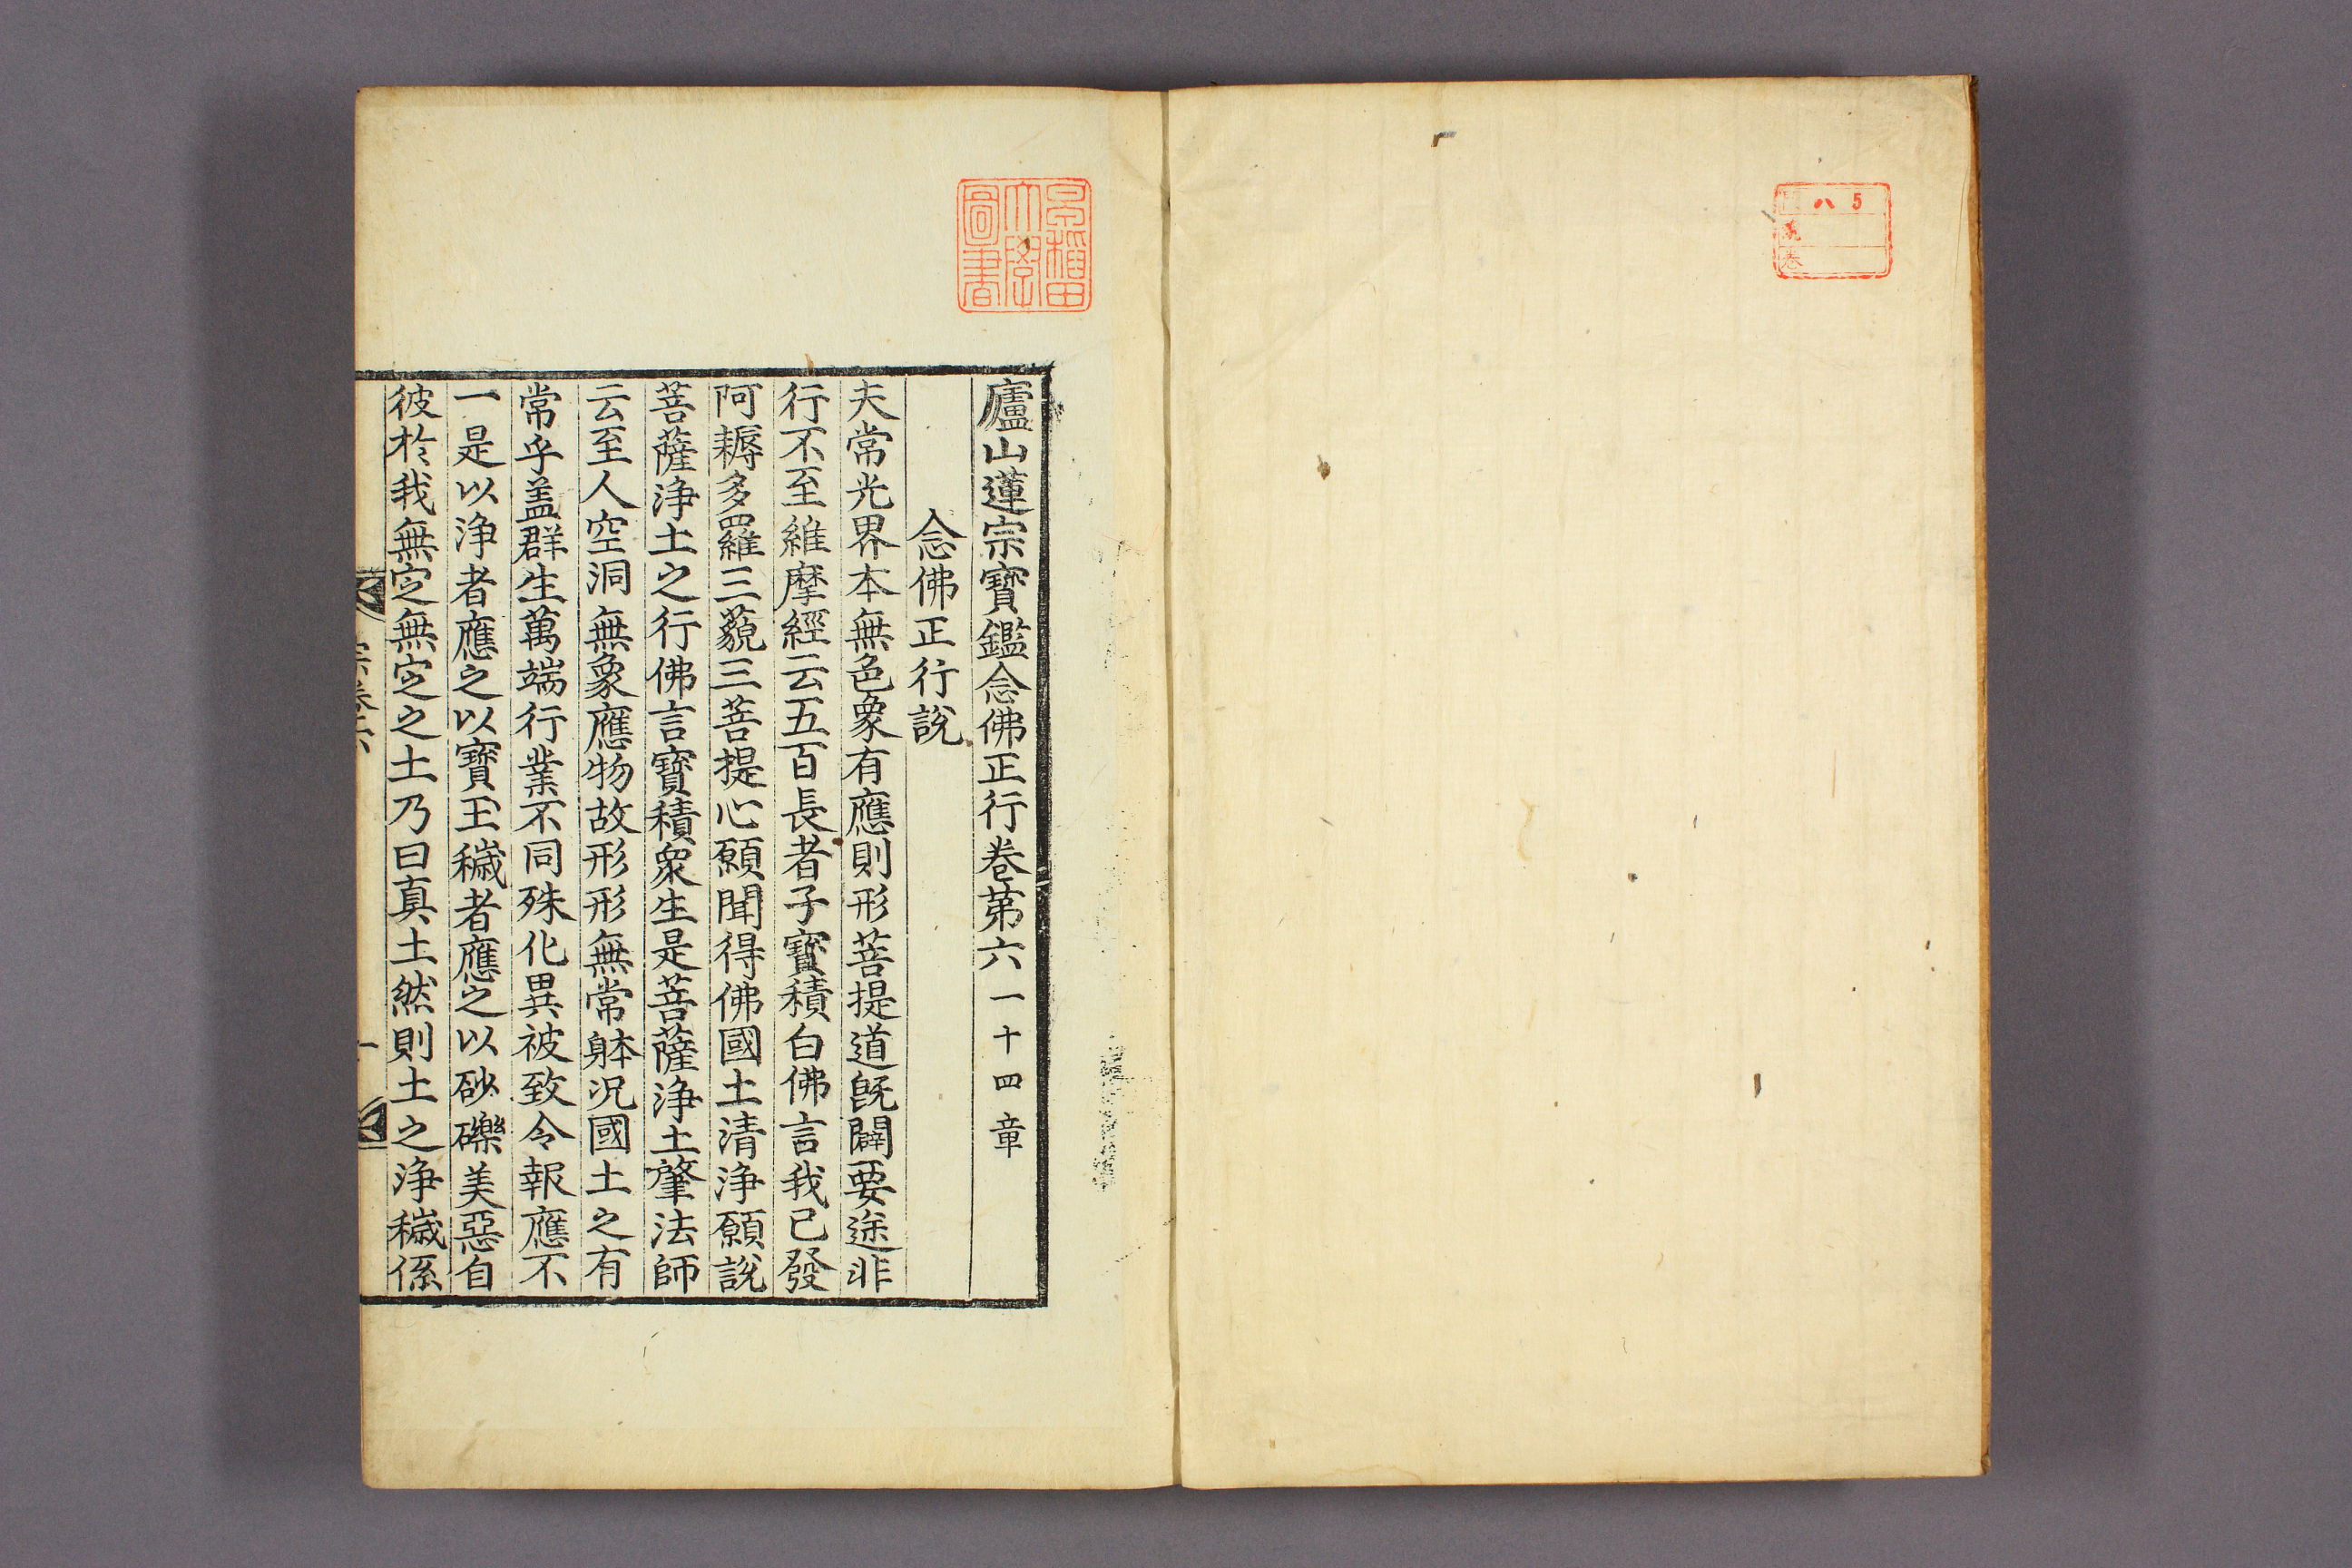 八 5
卷
早稲田
大學
圖書
廬山蓮宗寶鑑念佛正行卷第六 一十四章
念佛正行說
夫常光界本無色象有應則形菩提道旣闢要途非
行不至維摩經云五百長者子寳積白佛言我已發
阿耨多羅三藐三菩提心願聞得佛國土清淨願說
菩薩淨土之行佛言寶積衆生是菩薩淨土肇法師
云至人空洞無象應物故形形無常躰况國土之有
常乎盖群生萬端行業不同殊化異被致令報應不
一是以淨者應之以寶玉穢者應之以砂礫美惡自
彼於我無定無定之土乃曰真土然則土之淨穢係
宗卷六
一